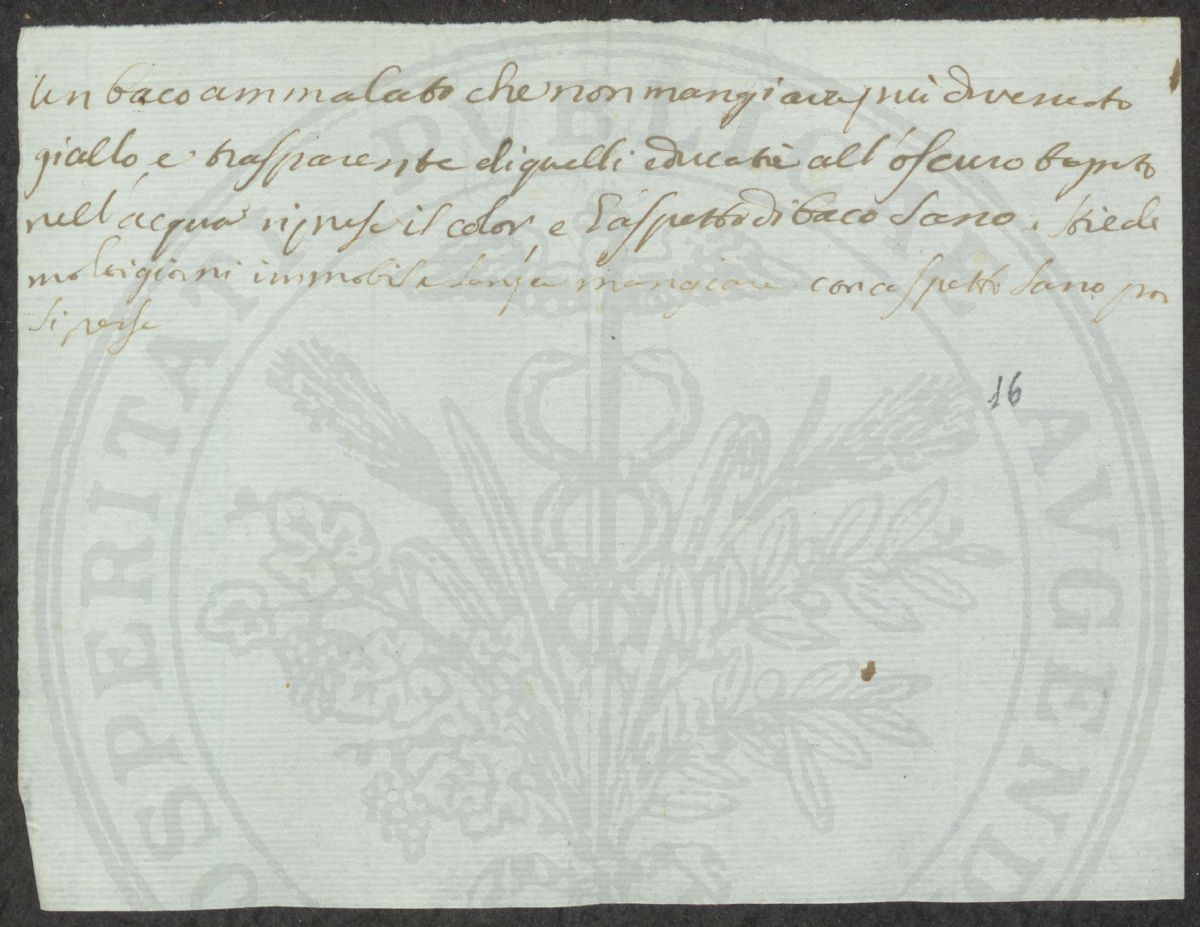 Un baco ammalato che non mangiava più divenuto
giallo, e trasparente di quelli educati all'oscuro
nell'acqua riprese il color, e l'aspetto di baco sano. stiede
molti giorni immobile senza mangiare con aspetto sano poi
si perse
16
PROSPERITATI PUBLICAE AUGENDAE